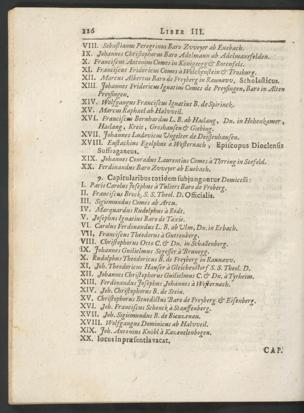 226 LIBER III.
VIII. Sebastianus Peregrinus Baro Zweyer ab Euebach.
IX. Joannes Christophorus Baro Adelmann ab Adelmansfelden.
X. Franciscus Antonius Comes in Königsegg & Rotenfels.
XI. Franciscus Fridericus Comes à Wolckenstein & Trosburg.
XII. Marcus Albertus Baro de Freyberg in Raunaw, Scholasticus.
XIII. Joannes Fridericus Ignatius Comes de Preysingen, Baro in Alten
Preysingen,
XIV. Wolffgangus Franciscus Ignatius B. de Speirinck.
XV. Marcus Raphael ab Halweil.
XVI. Franciscus Bernhardus L. B. ab Hailang, Dn. in Hohenkamer,
Hailang, Kreit, Groshausen & Giebing.
XVII. Joannes Ludovicus Ungelter de Deissenhausen.
XVIII. Eustachius Egolphus à Westernach, Episcopus Dioclensis
Suffraganeus.
XIX. Joannes Conradus Laurentius Comes à Törring in Seefeld.
XX. Ferdinandus Baro Zweyer ab Euebach.
9. Capitularibus totidem subjunguntur Domicelli:
I. Paris Carolus Josephus à Tulliers Baro de Froberg.
II. Franciscus Brock, S. S. Theol. D. Officialis.
III. Sigismundus Comes ab Arcu.
IV. Marquardus Rudolphus à Rodt.
V. Josephus Ignatius Baro de Taxis.
VI. Carolus Ferdinandus L. B. ab Ulm, Dn. in Erbach.
VII, Franciscus Theodorus à Guttenberg.
VIII. Christophorus Otto C. & Dn. in Schallenberg.
IX. Joannes Guilielmus Segesser à Brunegg.
X. Rudolphus Theodoricus B. de Freyberg in Raunavv.
XI. Joh. Theodoricus Hauser à Gleichenstorf S. S. Theol. D.
XII. Joannes Christophorus Guilielmus C. & Dn. à Tyrheim.
XIII. Ferdinandus Josephus Johannes à Westernach.
XIV. Joh. Christophorus B. de Stein.
XV, Christophorus Benedictus Baro de Freyberg & Eisenberg.
XVI. Joh. Franciscus Schenck à Stauffenberg.
XVII. Joh. Sigismundus B. de
XVIII. Wolfgangus Dominicus ab Halweil.
XIX. Joh. Antonius Knöbl à Kazenelenbogen.
XX. locus in præsentia vacat.
CAP.